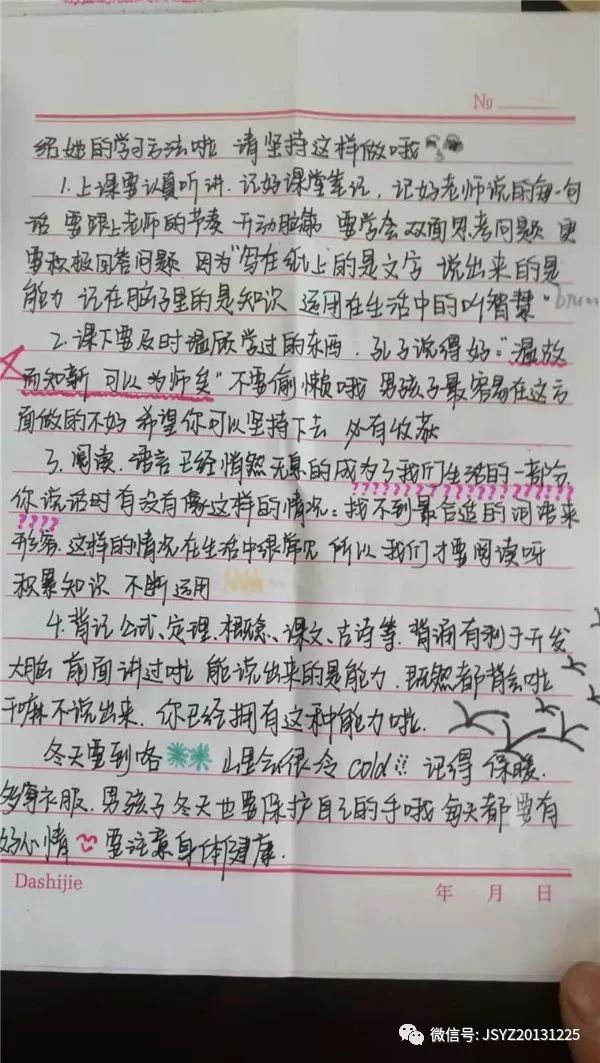 №
给她的学习方法啦 请坚持这样做哦
1.上课要认真听讲.记好课堂笔记,记好老师说的每一句
话 要跟上老师的节奏 开动脑筋 要学会双面思考问题 更
要积极回答问题 因为"写在纸上的是文字 说出来的是
能力 记在脑子里的是知识 运用在生活中的叫智慧"
2.课下要及时温顾学过的东西.孔子说得好:"温故
而知新 可以为师矣"不要偷懒哦 男孩子最容易在这方
面做的不好 希望你可以坚持下去 必有收获
3.阅读.语言已经悄然无息的成为了我们生活的一部分
你说话时有没有像这样的情况:找不到最合适的词语来
形容.这样的情况在生活中很常见 所以我们才要阅读呀
积累知识 不断运用
4.背记公式、定理、概念、课文、古诗等.背诵有利于开发
大脑 前面讲过啦 能说出来的是能力.既然都背会啦
干嘛不说出来.你已经拥有这种能力啦.
冬天要到咯 山里会很冷 cold!! 记得 保暖.
多穿衣服.男孩子冬天也要保护自己的手哦 每天都要有
好心情 要注意身体健康.
Dashijie 年 月 日
微信号: JSYZ20131225